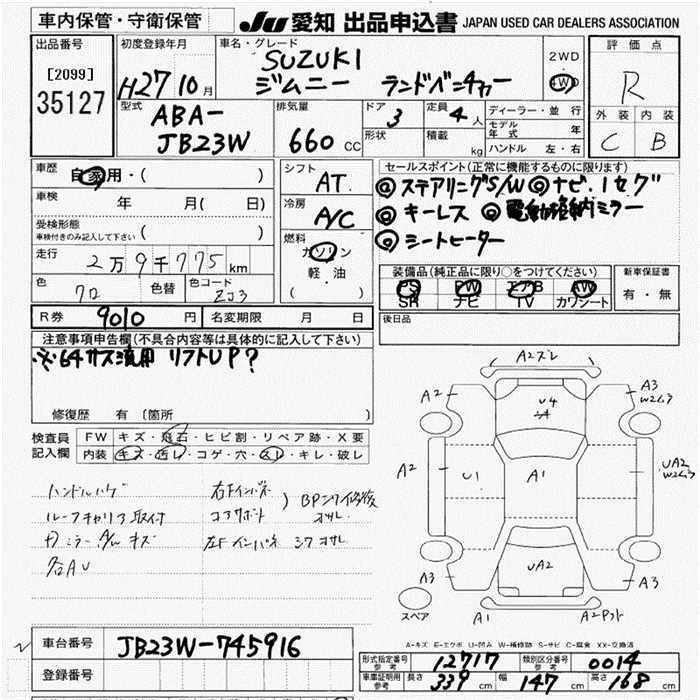 車内保管・守衛保管
JU 愛知 出品申込書 JAPAN USED CAR DEALERS ASSOCIATION
出品番号
[2099]
35127
初度登録年月
H27 10月
車名・グレード
SUZUKI
ジムニー ランドベンチャー
2WD
4WD
評価点
R
外装 内装
C B
型式
ABA-
JB23W
排気量
660 CC
ドア 3
形状
定員 4人
積載 kg
ディーラー・並行
モデル年式 年
ハンドル 左・右
車歴 自家用・( )
車検 年 月( 日)
受検形態
車検付きのみ記入して下さい ( )
走行 2万9千775km
色 クロ 色替 色コード ZJ3
シフト
AT
冷房
A/C
燃料
ガソリン
軽・油
( )
セールスポイント(正常に機能するものに限ります)
◎ステアリングS/W ◎ナビ.1セグ
◎キーレス ◎電動格納ミラー
◎シートヒーター
装備品(純正品に限り○をつけてください)
PS PW エアB AW
SR ナビ TV カワシート
新車保証書
有・無
R券 9010円 名変期限 月 日
後日品
注意事項申告欄(不具合内容等は具体的に記入して下さい)
リフトUP?
修復歴 有 〔箇所 〕
検査員記入欄
FW キズ・飛石・ヒビ割・リペア跡・X要
内装 キズ・汚レ・コゲ・穴・スレ・キレ・破レ
ハンドルハゲ
ルーフキャリア取付
各AU
右Fインパネ
コアサポート
左Fインパネ
A2ズレ
A2
A3
W2ムラ
U4
A
A2
U1
A1
UA2
W2ムラ
UA2
A3
A3
スペア
A1
A-キズ E-エクボ U-凹み W-補修跡 S-サビ C-腐食 XX-交換済
車台番号 JB23W-745916
登録番号
形式指定番号 参考 12717 類別区分番号 参考 0014
車庫証明用 参考 長さ 339cm 幅 147cm 高さ 168cm